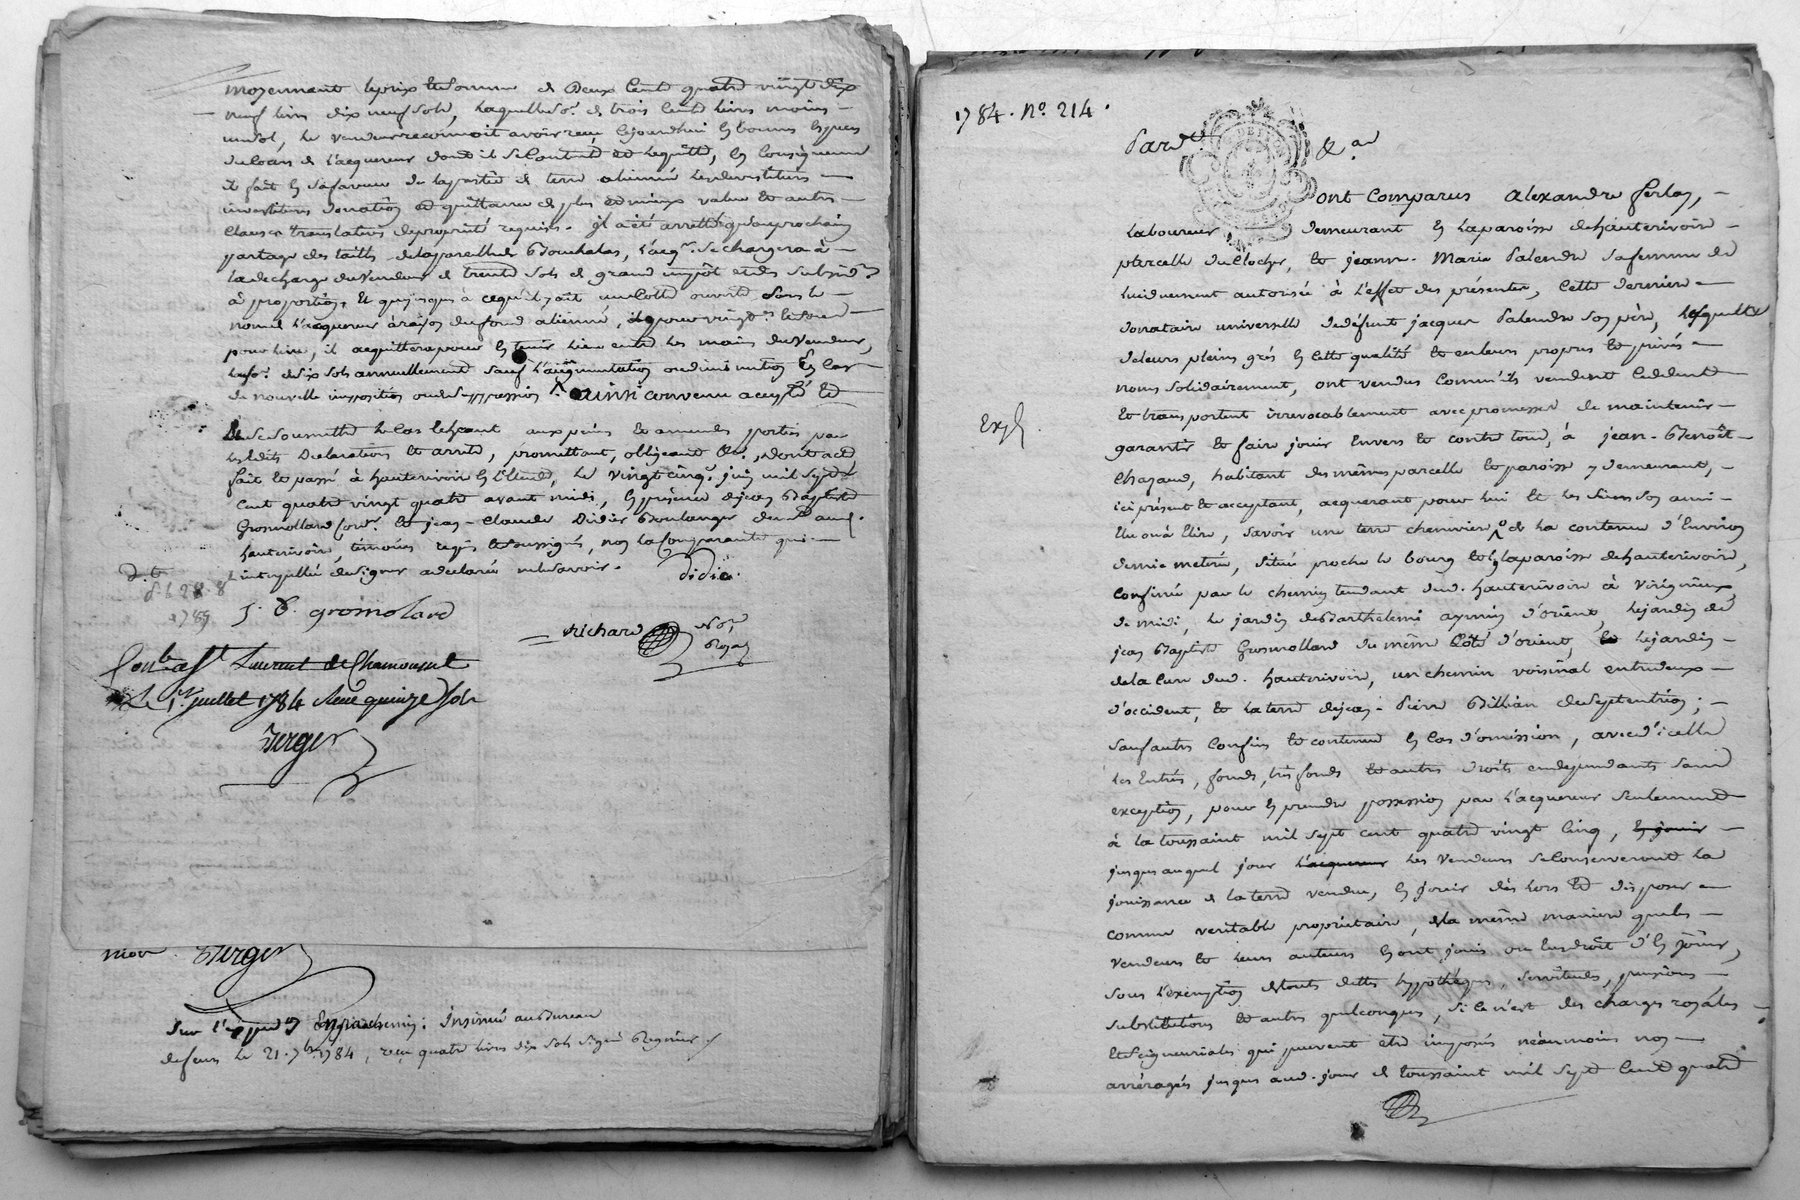 moyennant le prix et somme de Deux Cent quatre vingt dix
neuf livres dix neuf sols, laquelle so.e de trois Cent livres moins
un sol, le vendeur reconnoit avoir reçu cejourdhui en bonnes especes
du Cours de l'acquereur dont il se Contente et le quitte, en Consequence
il fait en sa faveur de la partie de terre alienée les devestitures
investitures donation et quittance de plus et mieux value et autres
Clauses translatives de propriété requises. il a été arretté qu'au prochain
partage des tailles de la parcelle de l'acq.r se chargera à
la decharge du vendeur de trente sols de grand impôt et des subsid.s
à proportion, Et jusques à ce qu'il y ait une Cotte ouverte sous le
nom de l'acquereur à raison du fond aliené,
pour livre, il acquittera pour en tenir lieu entre les mains du vendeur,
la so.e de dix sols annuellement sauf l'augmentation ou diminution En Cas
de nouvelle imposition ou de suppression. ainsi convenu accepté et
se soumettre le Cas echeant aux peines et amendes portées par
les Edits Declarations et arrets, promettant, obligeant &c., dont acte
fait et passé à hauterivoire en l'Etude, le vingt cinq.e juin mil sept
cent quatre vingt quatre avant midi, en presence de jean Baptiste
Gromollard Cord.r et jean-Claude Didier Boulanger dem.t aud.
hauterivoire, témoins requis et soussignés, non la Comparante qui
interpellée de signer a declaré ne le savoir.
Didié.
J. B. gromolard
Richard No.re
Royal
Conlle afft Laurent de Chamousset
Le 1.er juillet 1784 Reçu quinze sols
Berger
Berger
Insinué au Bureau
de feurs le 21. 7bre 1784, reçu quatre livres dix sols signé Regnier
1784. N.o 214.
Pard.t &.a
ont Comparus Alexandre ferlay,
Laboureur demeurant en la paroisse de hauterivoire
parcelle du Clocher, et jeanne-Marie Palendre sa femme de
lui duement autorisée à l'effet des présentes, cette derniere
donataire universelle de défunt jacques Palendre son père, lesquels
de leurs pleins grés en cette qualité et en leurs propres et privés
noms solidairement, ont vendus Comm'ils vendent Ceddent
et transportent irrevocablement avec promesse de maintenir
garantir et faire jouir Envers et contre tous, à jean-Benoît
Chazaud, habitant des mêmes parcelle et paroisse y demeurant,
Exp.
ici présent et acceptant, acquerant pour lui et les siens son ami
Elu ou à Elire, savoir une terre chenevier.e de la contenue d'Environ
demie meterée, située proche le bourg et en la paroisse de hauterivoire,
Confinée par le chemin tendant dud. hauterivoire à Virigneux
de midi, le jardin de Barthelemi d'orient, le jardin de
jean Baptiste Gromollard du même Côté d'orient, le jardin
de la Cure dud. hauterivoire, un chemin voisinal entredeux
d'occident, et la terre de jean-Pierre Billian de septentrion;
sauf autres Confins et contenue en Cas d'omission, avec d'icelle
les Entrées, fonds, très fonds et autres droits en dependants sans
exception, pour en prendre possession par l'acquereur seulement
à la toussaint mil sept cent quatre vingt Cinq, en jouir
jusques auquel jour l'acquereur les Vendeurs se Conserveront la
jouissance de la terre vendue, en jouir dès lors et disposer
comme veritable proprietaire, de la même maniere que les
vendeurs et leurs auteurs en ont jouis ou eu droit d'en jouir,
sous l'exemption de toutes dettes hypothéques, servitudes, pensions
substitutions et autres quelconques, si ce n'est des charges royales
et seigneuriales qui peuvent être imposés néanmoins non
arréragés jusques aud. jour de toussaint mil sept Cent quatre